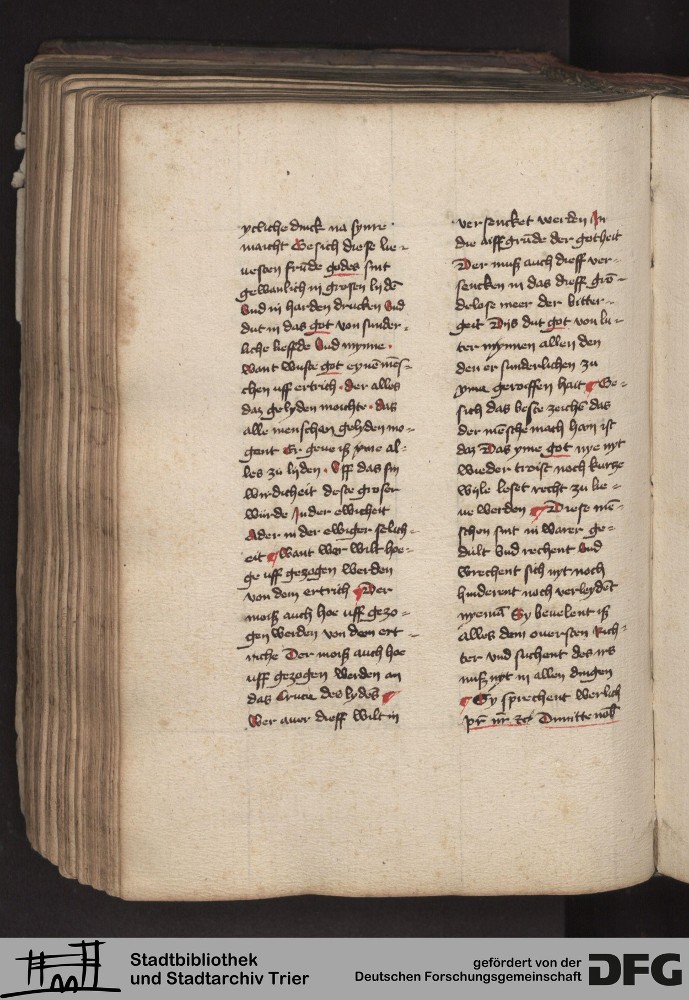 ycliche druck na synre
maicht Besich diese lie-
uesten frūde godes sint
gewanlich in grosen lydē
Vnd in harden drucken Vnd
dut in das got von sunder-
liche lieffde Vnd mynne.
Want wuste got eynē mēs-
chen uff ertrich. der alles
daz gelyden moichte. das
alle menschen gelyden mo-
gent Er geue iß yme al-
les zu lyden. Vff das sin
wirdicheit deste groser
würde In der ewicheit
Ader in der ewiger selich-
eit ¶ Want wer wilt hoe-
ge uff gezogen werden
von dem ertrich ¶ Der
moiß auch hoe uff gezo-
gen werden von dem ert-
riche Der moiß auch hoe
uff gezogen werden an
das Cruce des lydēs ¶
Wer auer dieff wilt in
versencket werden In
die aiffgrūde der gotheit
Der muß auch dieff ver-
sencken in das dieff gro-
delose meer der bitter-
geit Dijs dut got von lu-
ter mynnen allen den
den er sunderlichen zu
yme geroiffen hait ¶ Be-
sich das beste zeichē das
der mēsche mach han ist
daz Das yme got nye nyt
wieder troist noch kurtze
wyle leset recht zu lie-
ue werden ¶ Diese mē-
schen sint in warer ge-
dult Vnd rechent Vnd
wrechent sich nyt noch
hinderent noch verleydēt
nyemā Sy beuelent iß
alles dem ouersten Rich-
ter vnd suchent des irs
nuß nyt in allen dingen
¶ Sy sprechent werlich
pr̄ nr̄ ꝛc̄ Dimitte nob̄
Stadtbibliothek
und Stadtarchiv Trier
gefördert von der
Deutschen Forschungsgemeinschaft
DFG